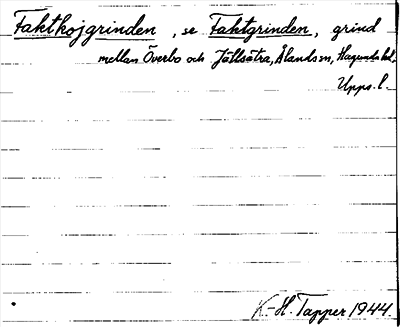 Faktkojgrinden, se Faktgrinden, grind
mellan Överbo och Jällsätra, Ålands sn, Hagunda hd.
Upps. l.
K.-H. Tapper 1944.